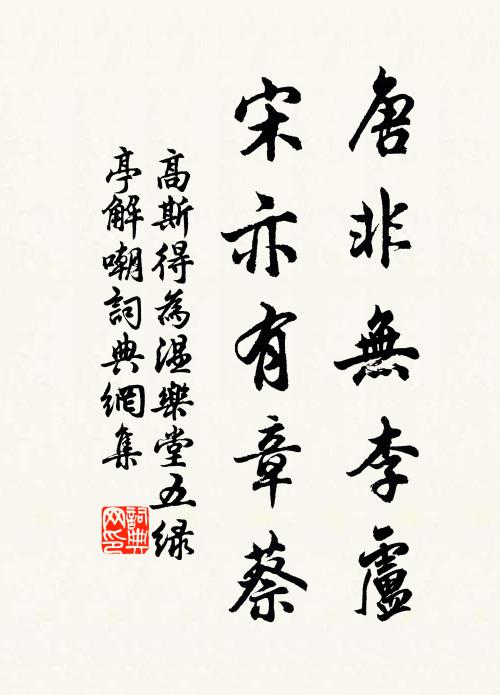 唐非無李盧
宋亦有章蔡
高斯得為湿樂堂五緑
亭解嘲詞典網集
詞典
网印